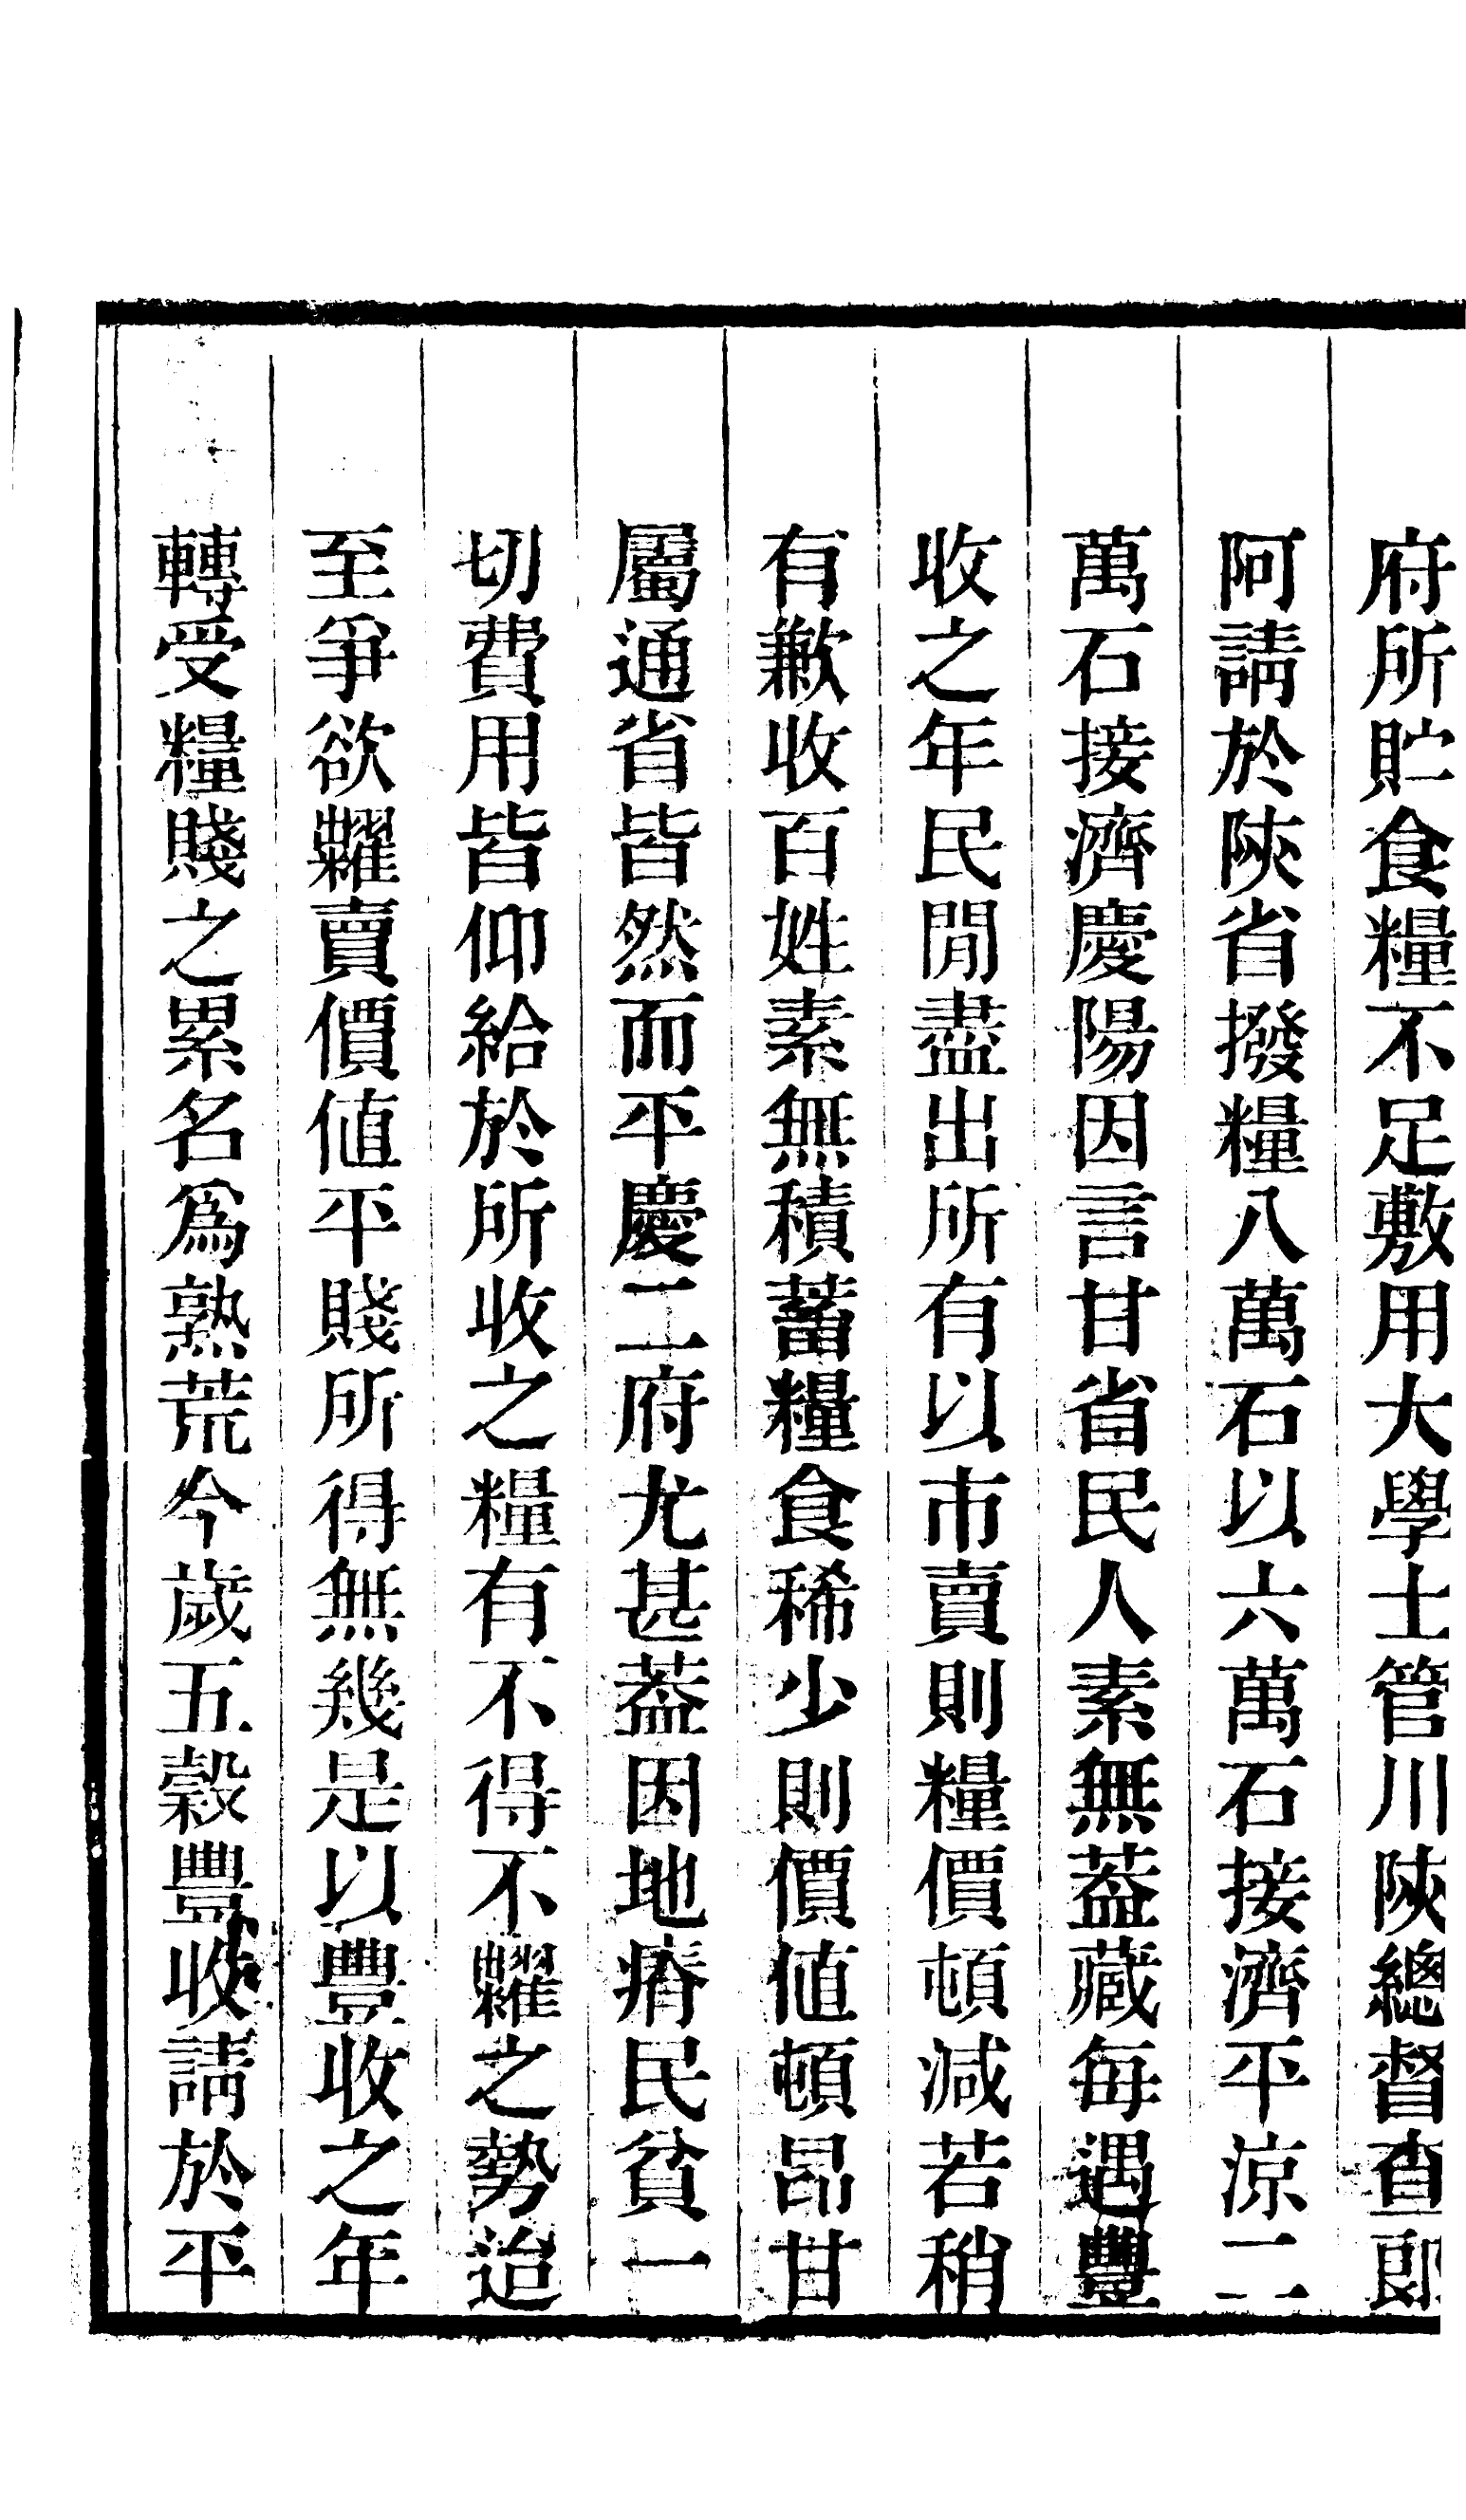 府所貯食糧不足敷用大學士管川陜總督查郎
阿請於陜省撥糧八萬石以六萬石接濟平涼二
萬石接濟慶陽因言甘省民人素無葢藏每遇豐
收之年民閒盡出所有以市賣則糧價頓減若稍
有歉收百姓素無積蓄糧食稀少則價値頓昂甘
屬通省皆然而平慶二府尤甚葢因地瘠民貧一
切費用皆仰給於所收之糧有不得不糶之勢迨
至爭欲糶賣價値平賤所得無幾是以豐收之年
轉受糧賤之累名爲熟荒今歲五穀豐收請於平